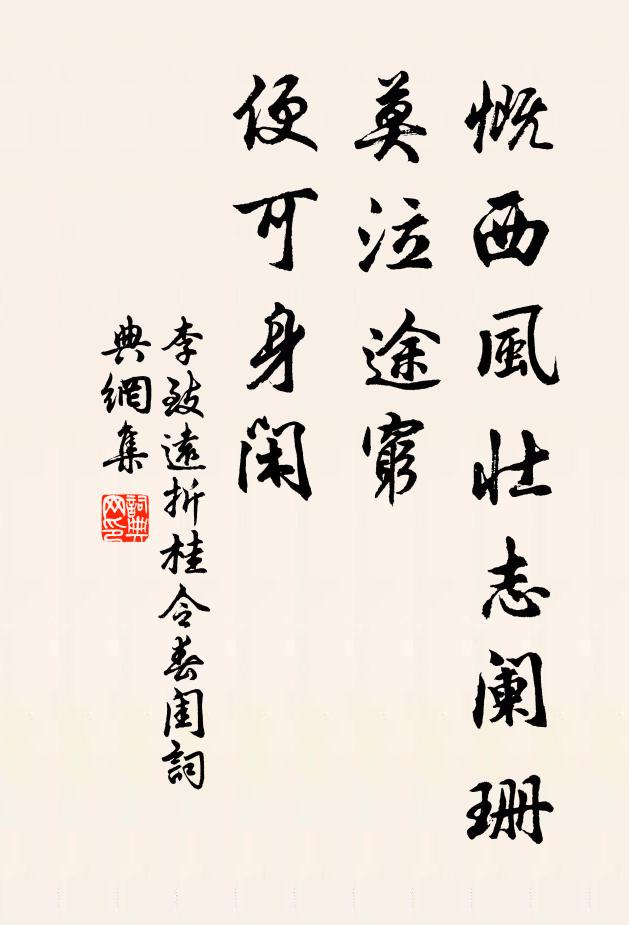 慨西風壮志阑珊
莫泣途窮
便可身閑
李致遠折桂令春閨詞
典網集
詞典
网印